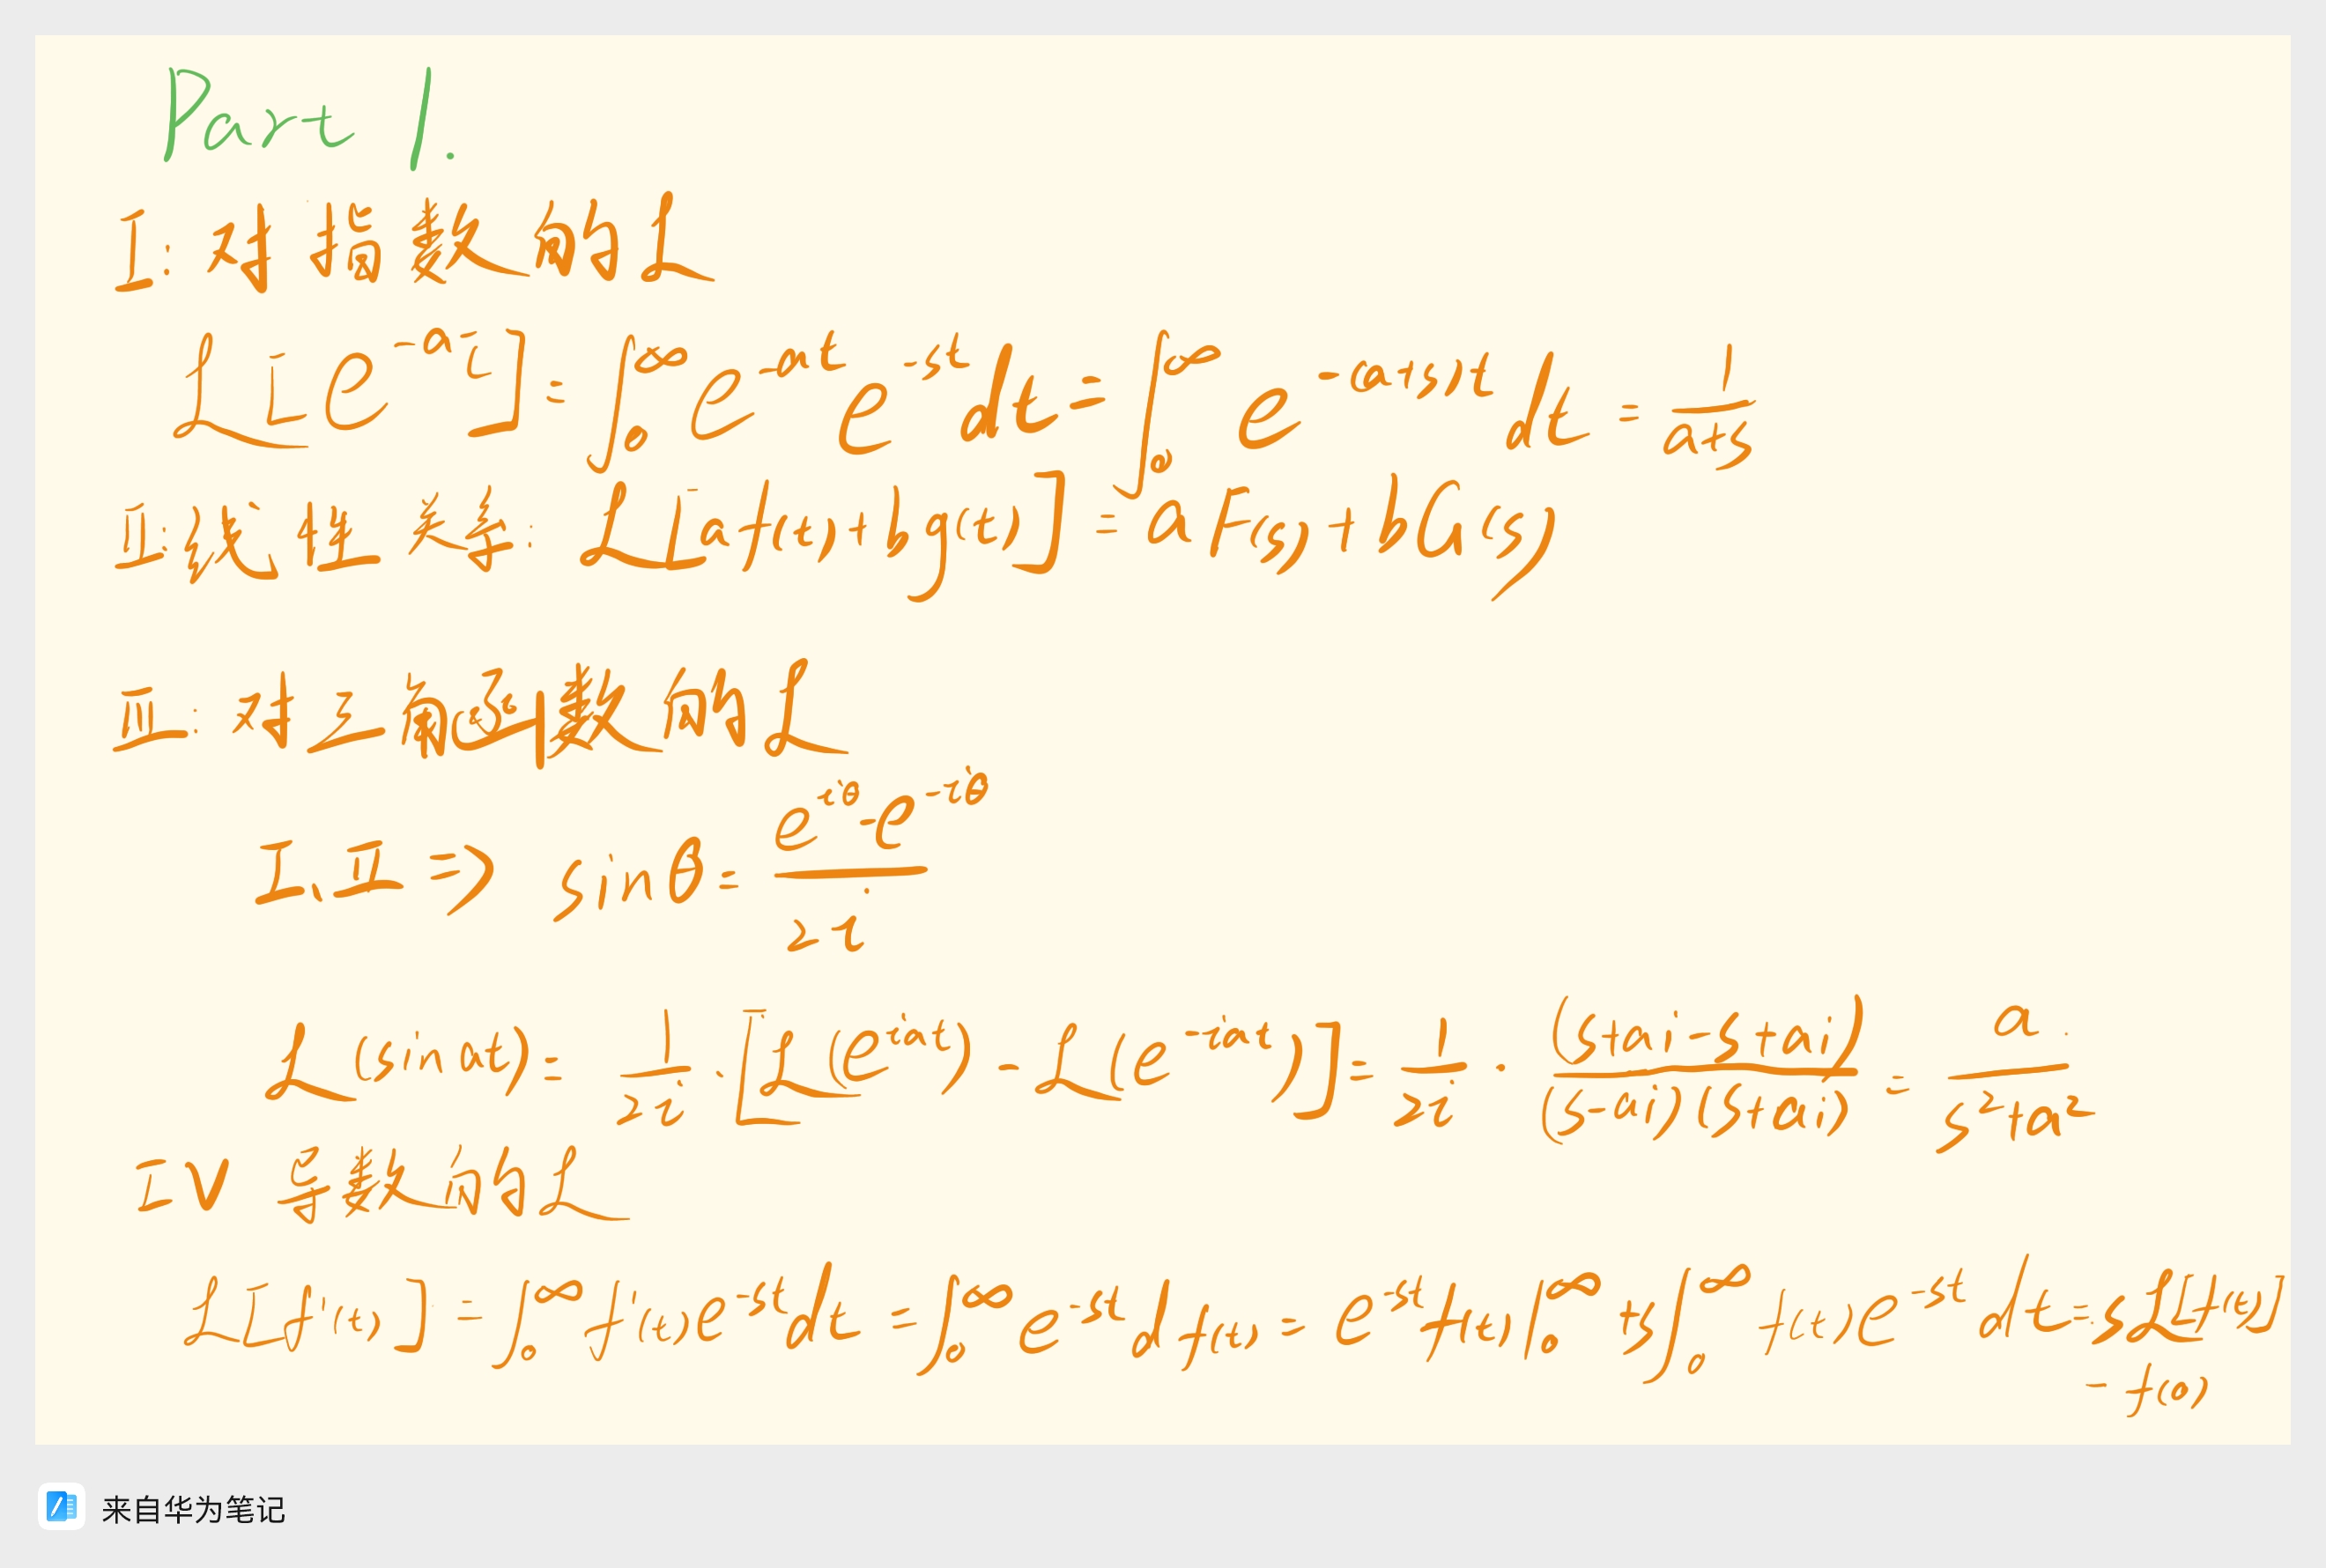 Part 1.
I: 对指数的L
L[e^{-at}] = ∫_0^∞ e^{-at} e^{-st} dt = ∫_0^∞ e^{-(a+s)t} dt = \frac{1}{a+s}
II: 线性关系: L[af(t)+bg(t)] = aF(s)+bG(s)
III: 对三角函数的L
I、II => sinθ = \frac{e^{iθ}-e^{-iθ}}{2i}
L(sin at) = \frac{1}{2i}·[L(e^{iat}) - L(e^{-iat})] = \frac{1}{2i}·\frac{(s+ai-s+ai)}{(s-ai)(s+ai)} = \frac{a}{s^2+a^2}
IV 导数的L
L[f'(t)] = ∫_0^∞ f'(t)e^{-st}dt = ∫_0^∞ e^{-st}df(t) = e^{-st}f(t)|_0^∞ +s∫_0^∞ f(t)e^{-st} dt = sL[f(s)]
- f(0)
来自华为笔记